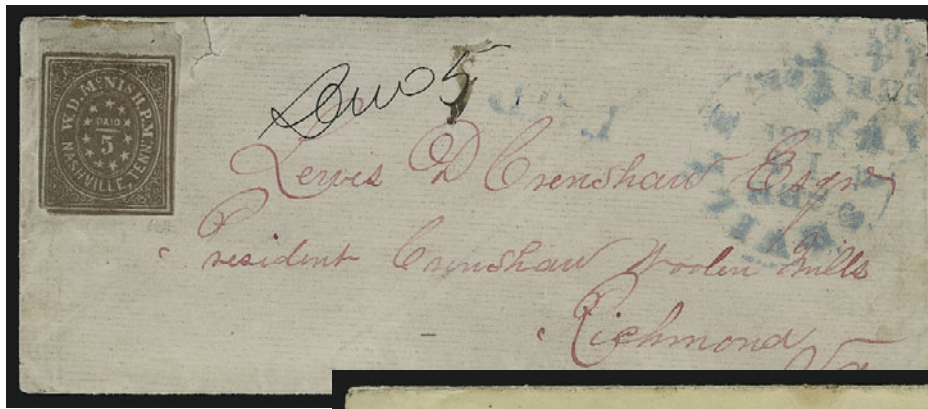 W.D. McNISH. P.M
PAID
5
NASHVILLE, TENN.
Due 5
Lewis D Crenshaw Esqr
President Crenshaw Woolen Mills
Richmond
Va